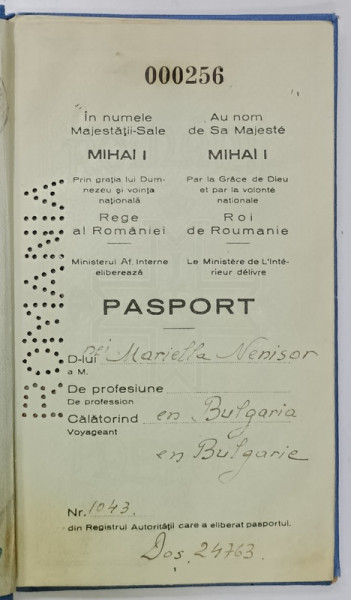 000256
În numele
Majestății-Sale
MIHAI I
Prin grația lui Dum-
nezeu și voința
națională
Rege
al României
Ministerul Af. Interne
eliberează
Au nom
de Sa Majesté
MIHAI I
Par la Grâce de Dieu
et par la volonté
nationale
Roi
de Roumanie
Le Ministère de L'Inté-
rieur délivre
ROMANIA
PASPORT
D-lui Mariella Nenisor
a M.
De profesiune
De profession
Călătorind en Bulgaria
Voyageant
en Bulgarie
Nr. 1043.
din Registrul Autorității care a eliberat pasportul.
Dos. 24763.